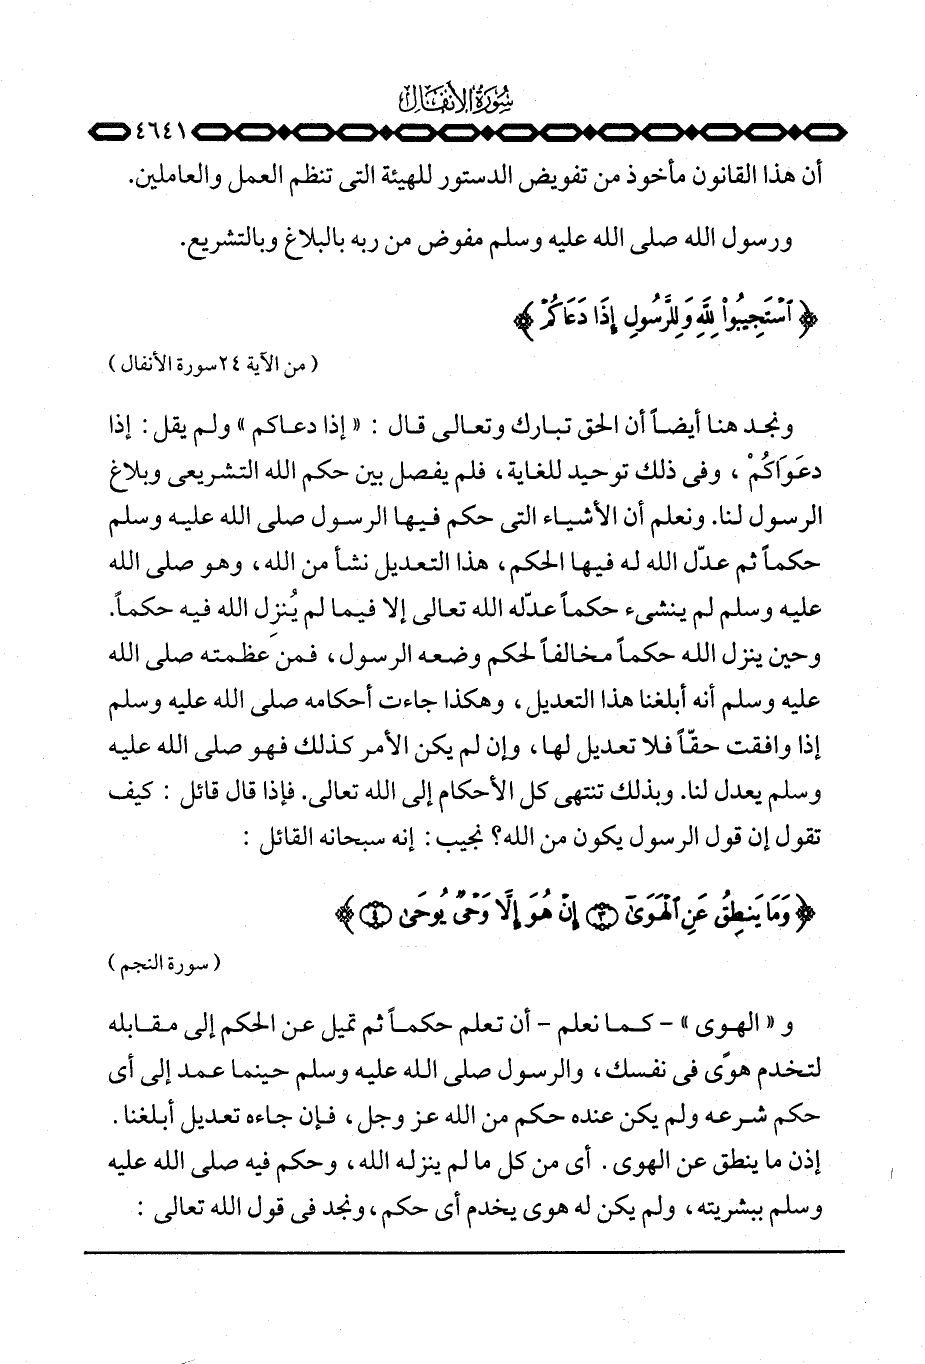 سورة الأنفال
٤٦٤١
أن هذا القانون مأخوذ من تفويض الدستور للهيئة التى تنظم العمل والعاملين.
ورسول الله صلى الله عليه وسلم مفوض من ربه بالبلاغ وبالتشريع.
﴿ ٱسْتَجِيبُوا۟ لِلَّهِ وَلِلرَّسُولِ إِذَا دَعَاكُمْ ﴾
( من الآية ٢٤ سورة الأنفال )
ونجد هنا أيضاً أن الحق تبارك وتعالى قال : « إذا دعاكم » ولم يقل : إذا
دعَوَاكُمْ ، وفى ذلك توحيد للغاية، فلم يفصل بين حكم الله التشريعى وبلاغ
الرسول لنا. ونعلم أن الأشياء التى حكم فيها الرسول صلى الله عليه وسلم
حكماً ثم عدّل الله له فيها الحكم، هذا التعديل نشأ من الله، وهو صلى الله
عليه وسلم لم ينشىء حكماً عدّله الله تعالى إلا فيما لم يُنزِل الله فيه حكماً.
وحين ينزل الله حكماً مخالفاً لحكم وضعه الرسول، فمن عظمته صلى الله
عليه وسلم أنه أبلغنا هذا التعديل، وهكذا جاءت أحكامه صلى الله عليه وسلم
إذا وافقت حقّاً فلا تعديل لها، وإن لم يكن الأمر كذلك فهو صلى الله عليه
وسلم يعدل لنا. وبذلك تنتهى كل الأحكام إلى الله تعالى. فإذا قال قائل : كيف
تقول إن قول الرسول يكون من الله؟ نجيب : إنه سبحانه القائل :
﴿ وَمَا يَنطِقُ عَنِ ٱلْهَوَىٰٓ ٣ إِنْ هُوَ إِلَّا وَحْىٌ يُوحَىٰ ٤ ﴾
( سورة النجم )
و « الهوى » - كما نعلم - أن تعلم حكماً ثم تميل عن الحكم إلى مقابله
لتخدم هوًى فى نفسك، والرسول صلى الله عليه وسلم حينما عمد إلى أى
حكم شرعه ولم يكن عنده حكم من الله عز وجل، فإن جاءه تعديل أبلغنا.
إذن ما ينطق عن الهوى. أى من كل ما لم ينزله الله، وحكم فيه صلى الله عليه
وسلم ببشريته، ولم يكن له هوى يخدم أى حكم، ونجد فى قول الله تعالى :